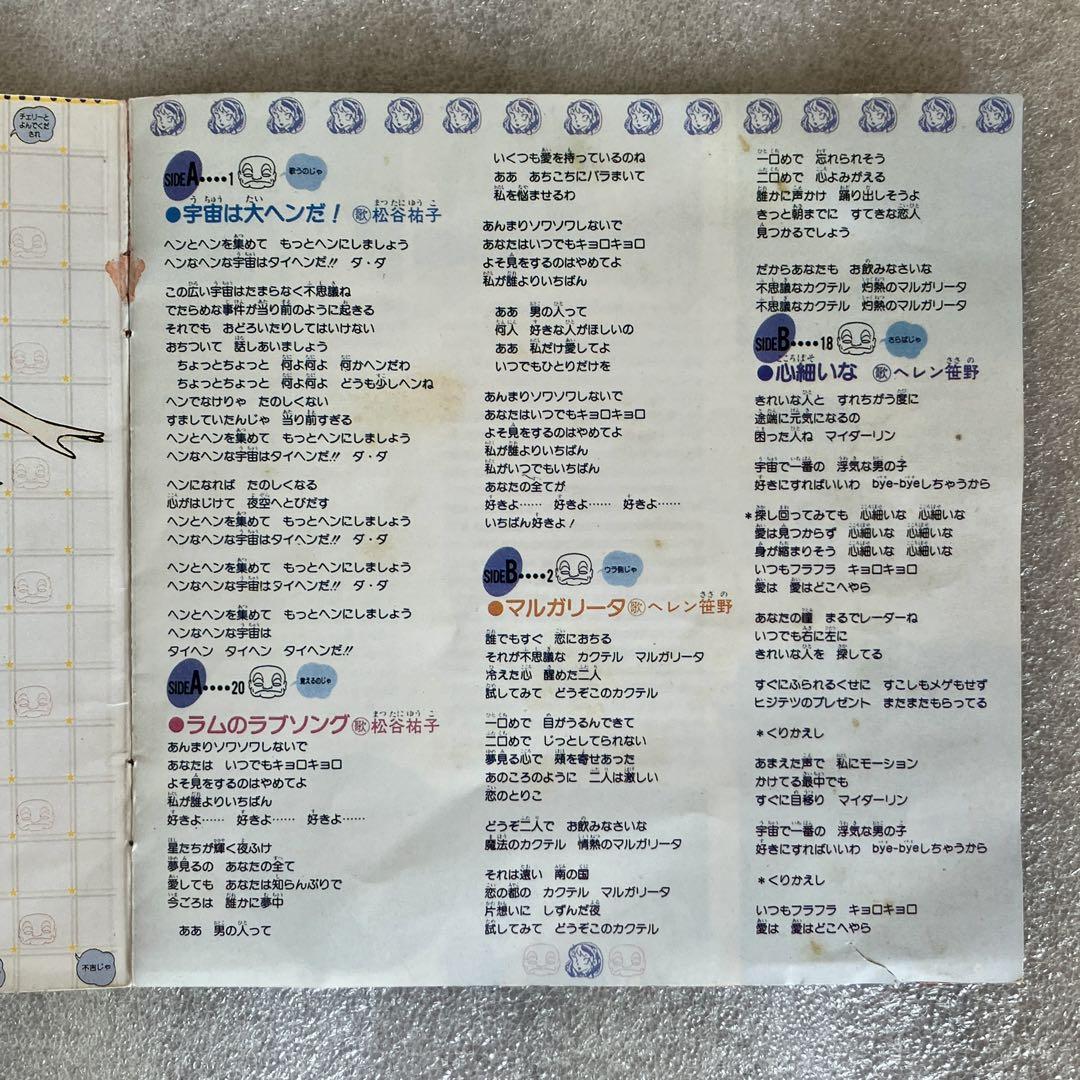 チェリーと
よんでくだ
され
不吉じゃ
SIDE A････1
歌うのじゃ
●宇宙は大ヘンだ！ 歌 松谷祐子
ヘンとヘンを集めて もっとヘンにしましょう
ヘンなヘンな宇宙はタイヘンだ!! ダ・ダ
この広い宇宙はたまらなく不思議ね
でたらめな事件が当り前のように起きる
それでも おどろいたりしてはいけない
おちついて 話しあいましょう
ちょっとちょっと 何よ何よ 何かヘンだわ
ちょっとちょっと 何よ何よ どうも少しヘンね
ヘンでなけりゃ たのしくない
すましていたんじゃ 当り前すぎる
ヘンとヘンを集めて もっとヘンにしましょう
ヘンなヘンな宇宙はタイヘンだ!! ダ・ダ
ヘンになれば たのしくなる
心がはじけて 夜空へとびだす
ヘンとヘンを集めて もっとヘンにしましょう
ヘンなヘンな宇宙はタイヘンだ!! ダ・ダ
ヘンとヘンを集めて もっとヘンにしましょう
ヘンなヘンな宇宙はタイヘンだ!! ダ・ダ
ヘンとヘンを集めて もっとヘンにしましょう
ヘンなヘンな宇宙は
タイヘン タイヘン タイヘンだ!!
SIDE A････20
覚えるのじゃ
●ラムのラブソング 歌 松谷祐子
あんまりソワソワしないで
あなたは いつでもキョロキョロ
よそ見をするのはやめてよ
私が誰よりいちばん
好きよ…… 好きよ…… 好きよ……
星たちが輝く夜ふけ
夢見るの あなたの全て
愛しても あなたは知らんぷりで
今ごろは 誰かに夢中
ああ 男の人って
いくつも愛を持っているのね
ああ あちこちにバラまいて
私を悩ませるわ
あんまりソワソワしないで
あなたはいつでもキョロキョロ
よそ見をするのはやめてよ
私が誰よりいちばん
ああ 男の人って
何人 好きな人がほしいの
ああ 私だけ愛してよ
いつでもひとりだけを
あんまりソワソワしないで
あなたはいつでもキョロキョロ
よそ見をするのはやめてよ
私が誰よりいちばん
私がいつでもいちばん
あなたの全てが
好きよ…… 好きよ…… 好きよ……
いちばん好きよ！
SIDE B････2
ウラ側じゃ
●マルガリータ 歌 ヘレン笹野
誰でもすぐ 恋におちる
それが不思議な カクテル マルガリータ
冷えた心 醒めた二人
試してみて どうぞこのカクテル
一口めで 目がうるんできて
二口めで じっとしてられない
夢見る心で 頬を寄せあった
あのころのように 二人は激しい
恋のとりこ
どうぞ二人で お飲みなさいな
魔法のカクテル 情熱のマルガリータ
それは遠い 南の国
恋の都の カクテル マルガリータ
片想いに しずんだ夜
試してみて どうぞこのカクテル
一口めで 忘れられそう
二口めで 心よみがえる
誰かに声かけ 踊り出しそうよ
きっと朝までに すてきな恋人
見つかるでしょう
だからあなたも お飲みなさいな
不思議なカクテル 灼熱のマルガリータ
不思議なカクテル 灼熱のマルガリータ
SIDE B････18
さらばじゃ
●心細いな 歌 ヘレン笹野
きれいな人と すれちがう度に
途端に元気になるの
困った人ね マイダーリン
宇宙で一番の 浮気な男の子
好きにすればいいわ bye-byeしちゃうから
*探し回ってみても 心細いな 心細いな
愛は見つからず 心細いな 心細いな
身が縮まりそう 心細いな 心細いな
いつもフラフラ キョロキョロ
愛は 愛はどこへやら
あなたの瞳 まるでレーダーね
いつでも右に左に
きれいな人を 探してる
すぐにふられるくせに すこしもメゲもせず
ヒジテツのプレゼント またまたもらってる
*くりかえし
あまえた声で 私にモーション
かけてる最中でも
すぐに目移り マイダーリン
宇宙で一番の 浮気な男の子
好きにすればいいわ bye-byeしちゃうから
*くりかえし
いつもフラフラ キョロキョロ
愛は 愛はどこへやら